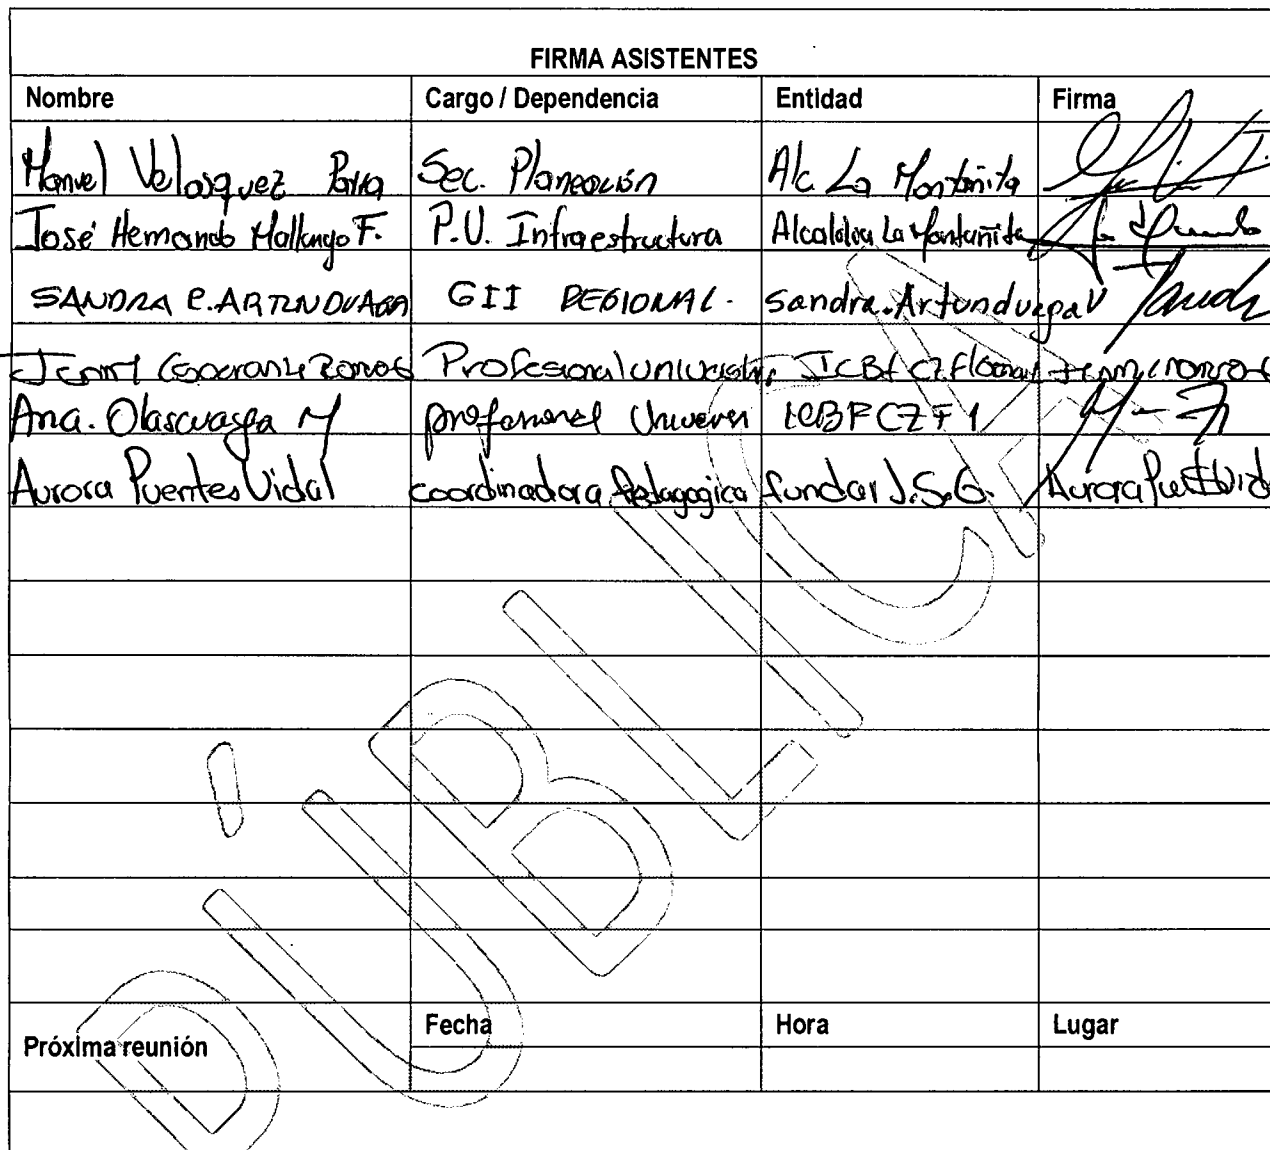 FIRMA ASISTENTES
Nombre Cargo / Dependencia Entidad Firma
Manuel Velasquez Parra Sec. Planeación Alc La Montañita
José Hernando Mallungo F. P.U. Infraestructura Alcaldia La Montañita
SANDRA P. ARTUNDUAGA GII REGIONAL. Sandra.Artunduaga
Profesional universitario ICBF CZ
Ana. Olascuaga M profesional Univers ICBF CZF1
Aurora Puentes Vidal coordinadora Pedagogica fundar J.S.G. Aurora
Próxima reunión Fecha Hora Lugar
PÚBLICA